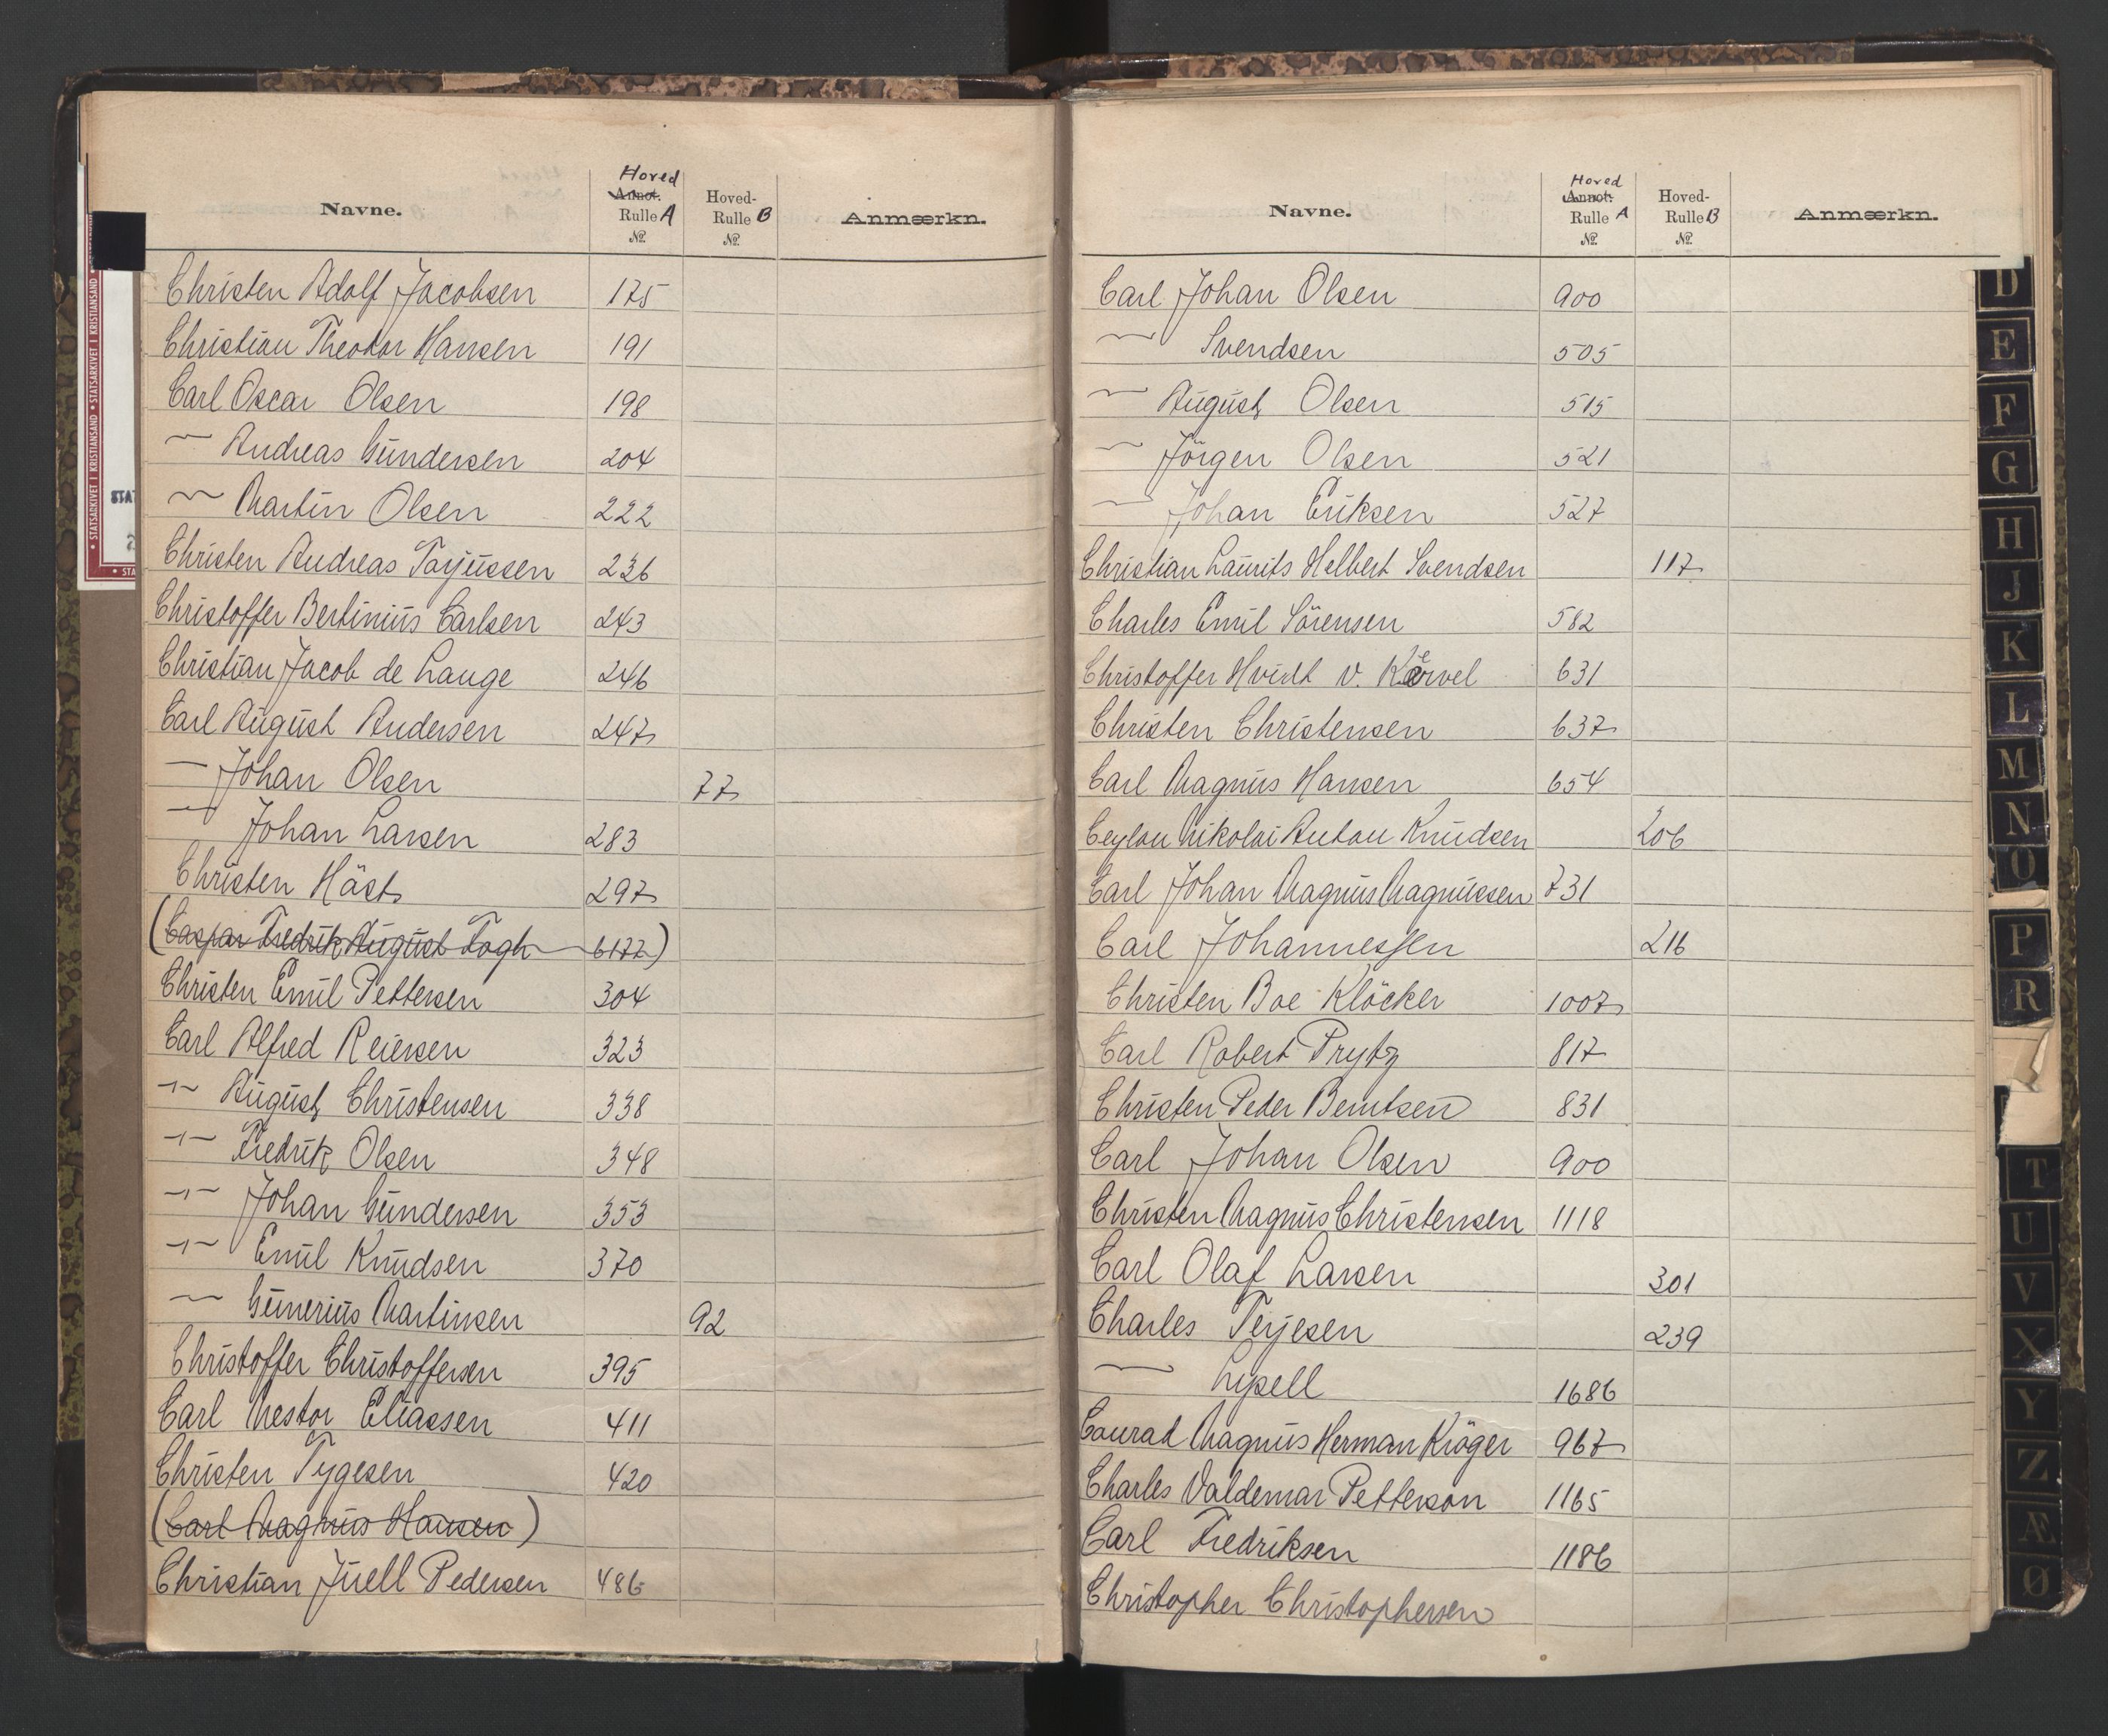 Navne.
Hoved
Annot.
Rulle A
№
Hoved-
Rulle B
№
Anmærkn.
Christen Adolf Jacobsen 175
Christian Theodor Hansen 191
Carl Oscar Olsen 198
— Andreas Gundersen 204
— Martin Olsen 222
Christen Andreas Tarjussen 236
Christoffer Bertinius Carlsen 243
Christian Jacob de Lange 246
Carl August Andersen 247
— Johan Olsen 77
— Johan Larsen 283
Christen Häst 297
(Caspar Fredrik August Fogh 6177)
Christen Emil Pettersen 304
Carl Alfred Reiersen 323
-"- August Christensen 338
-"- Fredrik Olsen 348
-"- Johan Gundersen 353
-"- Emil Knudsen 370
— Gunerius Martinsen 92
Christoffer Christoffersen 395
Carl Nestor Eliassen 411
Christen Tygesen 420
(Carl Magnus Hansen)
Christian Juell Pedersen 486
Navne.
Hoved
Annot.
Rulle A
№
Hoved-
Rulle B
№
Anmærkn.
Carl Johan Olsen 900
— Svendsen 505
— August Olsen 515
— Jörgen Olsen 521
— Johan Eriksen 527
Christian Laurits Helbert Svendsen 117
Charles Emil Sörensen 582
Christoffer Hvidt v. Kervel 631
Christen Christensen 637
Carl Magnus Hansen 654
Ceylon Nikolai Anton Knudsen 206
Carl Johan Magnus Magnussen 731
Carl Johannessen 216
Christen Boe Klöcker 1007
Carl Robert Prytz 817
Christen Peder Berntsen 831
Carl Johan Olsen 900
Christen Magnus Christensen 1118
Carl Olaf Larsen 301
Charles Terjesen 239
— Lysell 1686
Conrad Magnus Herman Kröger 967
Charles Valdemar Petterson 1165
Carl Fredriksen 1186
Christopher Christophersen
D
E
F
G
H
J
K
L
M
N
O
P
R
T
U
V
X
Y
Z
Æ
Ø
• STATSARKIVET I KRISTIANSAND • STATSARKIVET I KRISTIANSAND •